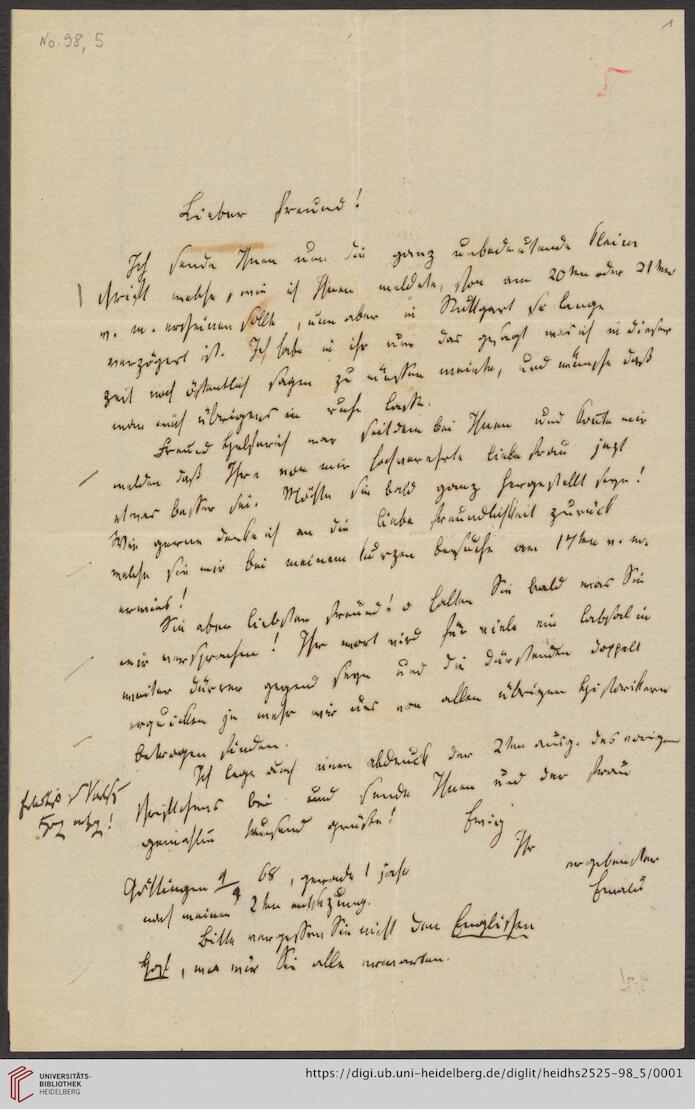 No. 98, 5
1
5
Lieber Freund!
Ich sende Ihnen nun die ganz unbedeutende kleine
schrift welche, wie ich Ihnen meldete, schon am 20ten oder 21ten
v. m. erscheinen sollte, nun aber in Stuttgart so lange
verzögert ist. Ich habe in ihr nur das gesagt was ich in dieser
zeit noch öffentlich sagen zu müssen meinte, und wünsche daß
man mich übrigens in ruhe lasse.
Freund war seitdem bei Ihnen und konnte mir
melden daß Ihre von mir hochverehrte liebe Frau jezt
etwas besser sei. Möchte sie bald ganz hergestellt seyn!
Wie gerne denke ich an die liebe freundlichkeit zurück
welche sie mir bei meinem kurzen besuche am 17ten v. m.
erwies!
Sie aber liebster Freund! o halten Sie bald was Sie
mir versprachen! Ihr wort wird für viele ein labsal in
weiter dürrer gegend seyn und die dürstenden doppelt
erquicken je mehr wir uns von allen übrigen Historikern
betrogen finden.
Ich lege auch einen abdruck der 2ten ausg. des vorigen
schriftchens bei und sende Ihnen und der Frau
gemahlin tausend grüße! Ewig
Ihr
ergebenster
Ewald
Göttingen 9/9 68, gerade 1 jahr
nach meiner 2ten entsezung.
Bitte vergessen Sie nicht den Englischen
, was wir Sie alle erwarten.
UNIVERSITÄTS-
BIBLIOTHEK
HEIDELBERG
https://digi.ub.uni-heidelberg.de/diglit/heidhs2525-98_5/0001